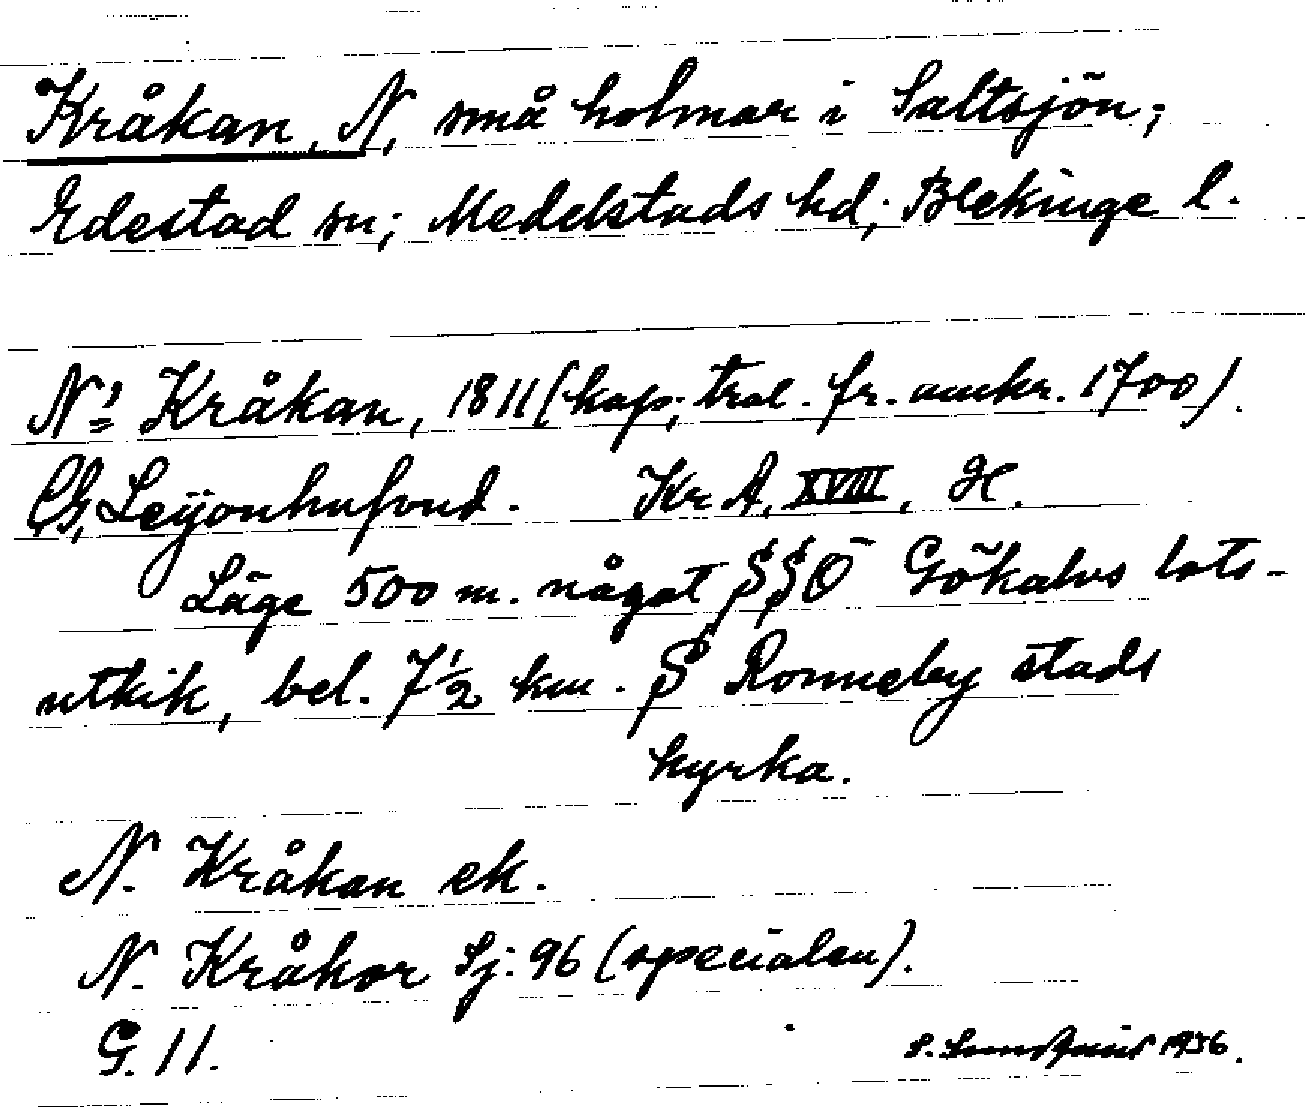 Kråkan, N, små holmar i Saltsjön;
Edestad sn; Medelstads hd; Blekinge l.
N! Kråkan, 1811 (kap; trol. fr. omkr. 1700).
C.G. Leijonhufvud. Kr A, XVIII, H.
Läge 500 m. något SSÖ Gökalvs lots-
utkik, bel. 7½ km. S Ronneby stads
kyrka.
N. Kråkan ek.
N. Kråkor Sj: 96 (specialen).
G. 11.
1936.